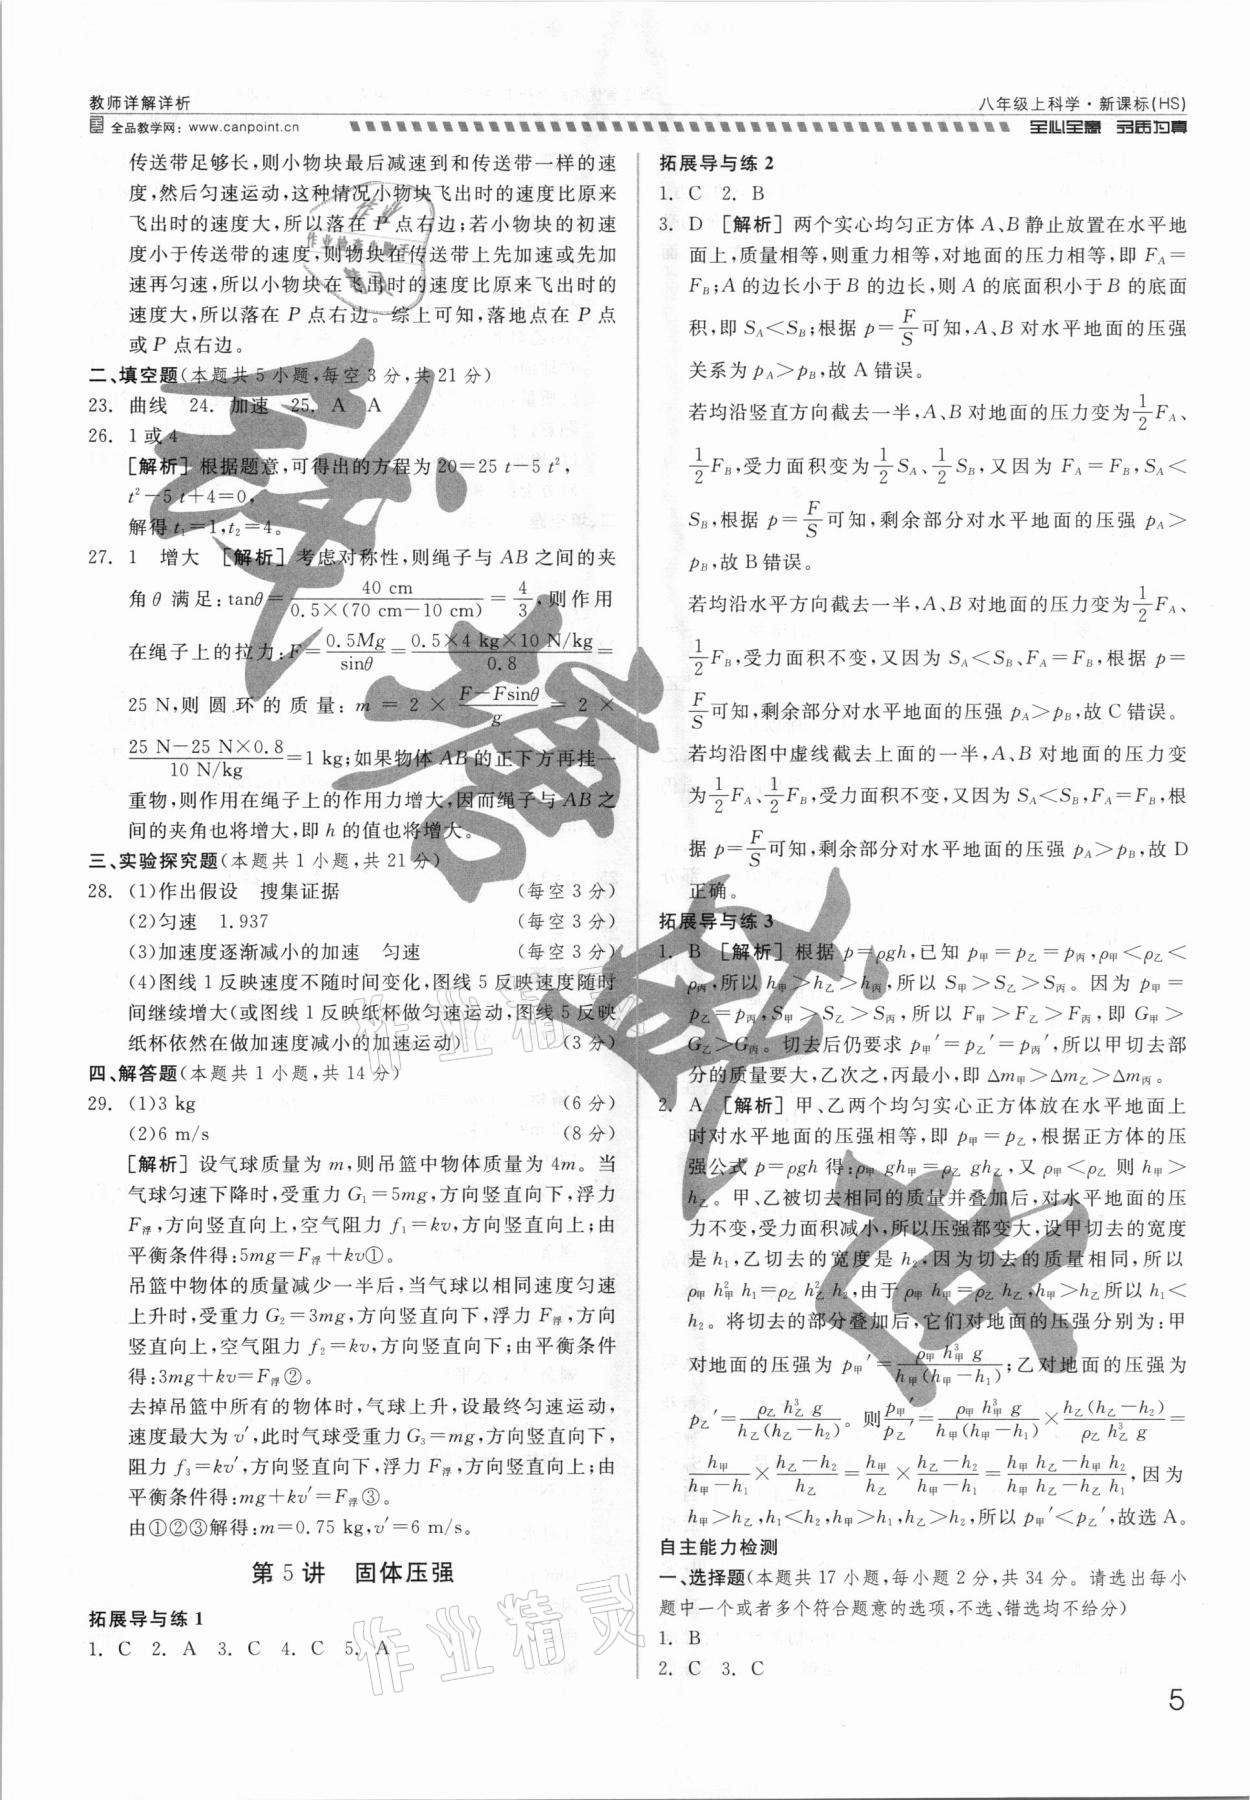 教师详解详析
八年级上科学·新课标(HS)
全品教学网：www.canpoint.cn
全心全意 字字为真
传送带足够长,则小物块最后减速到和传送带一样的速
度,然后匀速运动,这种情况小物块飞出时的速度比原来
飞出时的速度大,所以落在 P 点右边;若小物块的初速
度小于传送带的速度,则物块在传送带上先加速或先加
速再匀速,所以小物块在飞出时的速度比原来飞出时的
速度大,所以落在 P 点右边。综上可知,落地点在 P 点
或 P 点右边。
二、填空题(本题共 5 小题,每空 3 分,共 21 分)
23. 曲线 24. 加速 25. A A
26. 1 或 4
[解析] 根据题意,可得出的方程为 20=25 t－5 t²,
t²－5 t＋4=0,
解得 t₁=1,t₂=4。
27. 1 增大 [解析] 考虑对称性,则绳子与 AB 之间的夹
角 θ 满足:tanθ=40 cm/(0.5×(70 cm－10 cm))=4/3,则作用
在绳子上的拉力:F=0.5Mg/sinθ=(0.5×4 kg×10 N/kg)/0.8=
25 N,则圆环的质量: m = 2 × (F－Fsinθ)/g = 2 ×
(25 N－25 N×0.8)/(10 N/kg)=1 kg;如果物体 AB 的正下方再挂一
重物,则作用在绳子上的作用力增大,因而绳子与 AB 之
间的夹角也将增大,即 h 的值也将增大。
三、实验探究题(本题共 1 小题,共 21 分)
28. (1)作出假设 搜集证据 (每空 3 分)
(2)匀速 1.937 (每空 3 分)
(3)加速度逐渐减小的加速 匀速 (每空 3 分)
(4)图线 1 反映速度不随时间变化,图线 5 反映速度随时
间继续增大(或图线 1 反映纸杯做匀速运动,图线 5 反映
纸杯依然在做加速度减小的加速运动) (3 分)
四、解答题(本题共 1 小题,共 14 分)
29. (1)3 kg (6 分)
(2)6 m/s (8 分)
[解析] 设气球质量为 m,则吊篮中物体质量为 4m。当
气球匀速下降时,受重力 G₁=5mg,方向竖直向下,浮力
F浮,方向竖直向上,空气阻力 f₁=kv,方向竖直向上;由
平衡条件得:5mg=F浮＋kv①。
吊篮中物体的质量减少一半后,当气球以相同速度匀速
上升时,受重力 G₂=3mg,方向竖直向下,浮力 F浮,方向
竖直向上,空气阻力 f₂=kv,方向竖直向下;由平衡条件
得:3mg＋kv=F浮②。
去掉吊篮中所有的物体时,气球上升,设最终匀速运动,
速度最大为 v′,此时气球受重力 G₃=mg,方向竖直向下,
阻力 f₃=kv′,方向竖直向下,浮力 F浮,方向竖直向上;由
平衡条件得:mg＋kv′=F浮③。
由①②③解得:m=0.75 kg,v′=6 m/s。
第 5 讲 固体压强
拓展导与练 1
1. C 2. A 3. C 4. C 5. A
拓展导与练 2
1. C 2. B
3. D [解析] 两个实心均匀正方体 A、B 静止放置在水平地
面上,质量相等,则重力相等,对地面的压力相等,即 F_A=
F_B;A 的边长小于 B 的边长,则 A 的底面积小于 B 的底面
积,即 S_A＜S_B;根据 p=F/S可知,A、B 对水平地面的压强
关系为 p_A＞p_B,故 A 错误。
若均沿竖直方向截去一半,A、B 对地面的压力变为1/2 F_A、
1/2 F_B,受力面积变为1/2 S_A、1/2 S_B,又因为 F_A=F_B,S_A＜
S_B,根据 p=F/S可知,剩余部分对水平地面的压强 p_A＞
p_B,故 B 错误。
若均沿水平方向截去一半,A、B 对地面的压力变为1/2 F_A、
1/2 F_B,受力面积不变,又因为 S_A＜S_B、F_A=F_B,根据 p=
F/S可知,剩余部分对水平地面的压强 p_A＞p_B,故 C 错误。
若均沿图中虚线截去上面的一半,A、B 对地面的压力变
为1/2 F_A、1/2 F_B,受力面积不变,又因为 S_A＜S_B,F_A=F_B,根
据 p=F/S可知,剩余部分对水平地面的压强 p_A＞p_B,故 D
正确。
拓展导与练 3
1. B [解析] 根据 p=ρgh,已知 p甲=p乙=p丙,ρ甲＜ρ乙＜
ρ丙,所以 h甲＞h乙＞h丙,所以 S甲＞S乙＞S丙。因为 p甲=
p乙=p丙,S甲＞S乙＞S丙,所以 F甲＞F乙＞F丙,即 G甲＞
G乙＞G丙。切去后仍要求 p甲′=p乙′=p丙′,所以甲切去部
分的质量要大,乙次之,丙最小,即 Δm甲＞Δm乙＞Δm丙。
2. A [解析] 甲、乙两个均匀实心正方体放在水平地面上
时对水平地面的压强相等,即 p甲=p乙,根据正方体的压
强公式 p=ρgh 得:ρ甲 gh甲=ρ乙 gh乙,又 ρ甲＜ρ乙 则 h甲＞
h乙。甲、乙被切去相同的质量并叠加后,对水平地面的压
力不变,受力面积减小,所以压强都变大,设甲切去的宽度
是 h₁,乙切去的宽度是 h₂,因为切去的质量相同,所以
ρ甲 h甲² h₁=ρ乙 h乙² h₂,由于 ρ甲 h甲=ρ乙 h乙,h甲＞h乙所以 h₁＜
h₂。将切去的部分叠加后,它们对地面的压强分别为:甲
对地面的压强为 p甲′=ρ甲 h甲³ g/(h甲(h甲－h₁));乙对地面的压强为
p乙′=ρ乙 h乙³ g/(h乙(h乙－h₂))。则p甲′/p乙′=ρ甲 h甲³ g/(h甲(h甲－h₁))×h乙(h乙－h₂)/(ρ乙 h乙³ g)=
h甲/(h甲－h₁)×(h乙－h₂)/h乙=h甲/h乙×(h乙－h₂)/(h甲－h₁)=(h甲 h乙－h甲 h₂)/(h甲 h乙－h乙 h₁),因为
h甲＞h乙,h₁＜h₂,h甲＞h₁,h乙＞h₂,所以 p甲′＜p乙′,故选 A。
自主能力检测
一、选择题(本题共 17 小题,每小题 2 分,共 34 分。请选出每小
题中一个或者多个符合题意的选项,不选、错选均不给分)
1. B
2. C 3. C
5
作业精灵
作业精灵